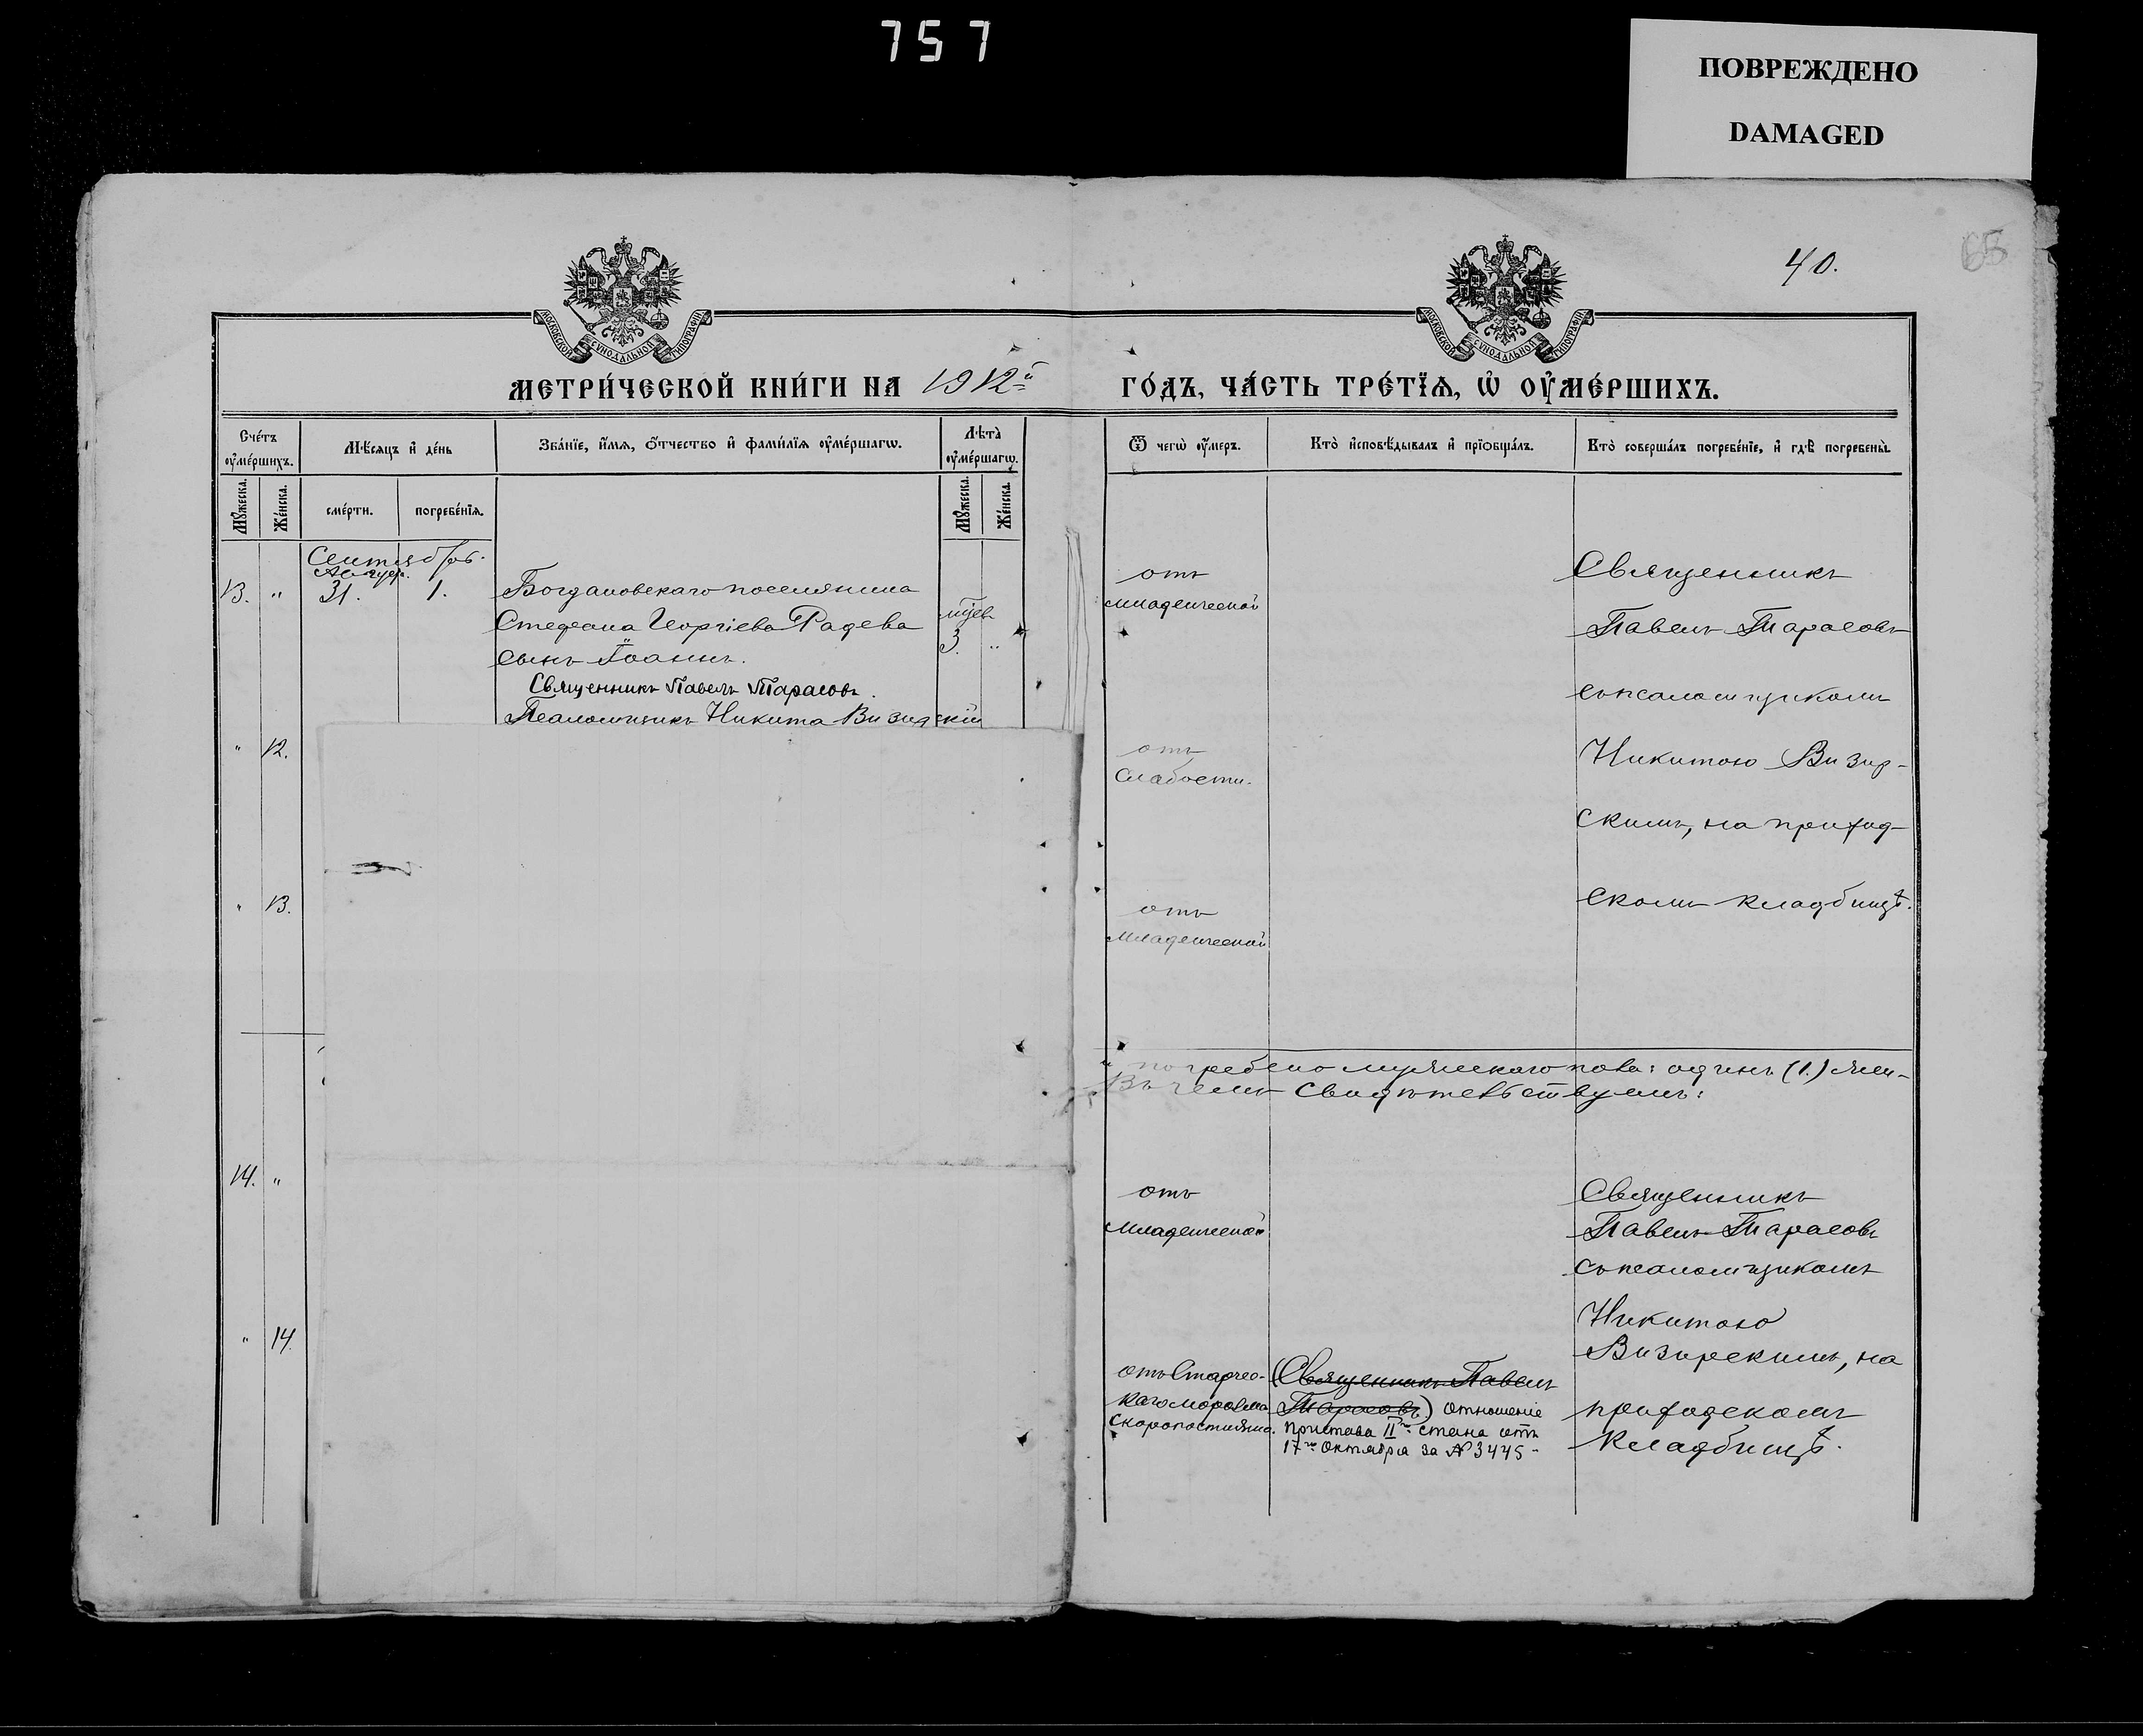 757
ПОВРЕЖДЕНО
DAMAGED
40.
65
МОСКОВСКОЙ СѴНОДАЛЬНОЙ ТИПОГРАФІИ
МОСКОВСКОЙ СѴНОДАЛЬНОЙ ТИПОГРАФІИ
МЕТРИ́ЧЕСКОЙ КНИ́ГИ НА 1912й ГО́ДЪ, ЧА́СТЬ ТРЕ́ТЇѦ, Ѡ҆ ОУ҆МЕ́РШИХЪ.
Сче́тъ оу҆ме́ршихъ.
Мꙋ́жеска.
Же́нска.
Мѣ́сѧцъ и҆ де́нь
сме́рти.
погребе́нїѧ.
Зва́нїе, и҆́мѧ, ѻ҆́тчество и҆ фами́лїѧ оу҆ме́ршагѡ.
Лѣ́та̀ оу҆ме́ршагѡ.
Мꙋ́жеска.
Же́нска.
Ѿ чегѡ̀ оу҆́меръ.
Кто̀ и҆сповѣ́дывалъ и҆ прїѡбща́лъ.
Кто̀ соверша́лъ погребе́нїе, и҆ гдѣ̀ погребены̀.
Сентябрь.
Август.
13. " 31. 1.
Богдановскаго поселянина
Стефана Георгіева Радева
сынъ Іоаннъ.
мѣсв
3. "
Священникъ Павелъ Тарасовъ.
Псаломщикъ Никита Визирскій
отъ
младенческой
Священникъ
Павелъ Тарасовъ
съ псаломщикомъ
Никитою Визир-
скимъ, на приход-
скомъ кладбищѣ.
" 12.
отъ
слабости.
" 13.
отъ
младенческой
и погребено мужескаго пола: одинъ (1.) жен-
Въ чемъ свидѣтельствуемъ:
14. "
отъ
младенческой
Священникъ
Павелъ Тарасовъ
съ псаломщикомъ
Никитою
Визирскимъ, на
приходскомъ
кладбищѣ.
" 14.
отъ Старчес-
каго маразма
скоропостижно.
(Священникъ Павелъ
Тарасовъ) отношеніе
Пристава IIго стана отъ
17го Октября за № 3445 -